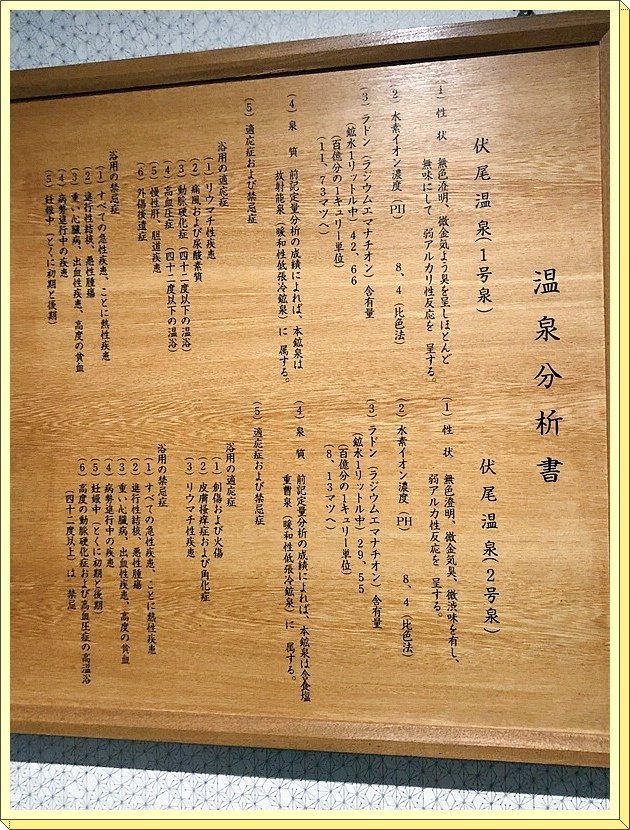 温泉分析書
伏尾温泉(1号泉)
(1) 性状 無色澄明、微金気よう臭を呈しほとんど
無味にして 弱アルカリ性反応を 呈する。
(2) 水素イオン濃度 (PH) 8、4 (比色法)
(3) ラドン (ラジウムエマナチオン) 含有量
(鉱水1リットル中) 42、66
(百億分の1キュリー単位)
(11、73マツヘ)
(4) 泉質 前記定量分析の成績によれば、本鉱泉は
放射能泉 (緩和性低張冷鉱泉) に 属する。
(5) 適応症および禁忌症
浴用の適応症
(1) リウマチ性疾患
(2) 痛風および尿酸素質
(3) 動脈硬化症 (四十二度以下の温浴)
(4) 高血圧症 (四十二度以下の温浴)
(5) 慢性肝、胆道疾患
(6) 外傷後遺症
浴用の禁忌症
(1) すべての急性疾患、ことに熱性疾患
(2) 進行性結核、悪性腫瘍
(3) 重い心臓病、出血性疾患、高度の貧血
(4) 病勢進行中の疾患
(5) 妊娠中 (とくに初期と後期)
伏尾温泉(2号泉)
(1) 性状 無色澄明、微金気臭、微渋味を有し、
弱アルカ性反応を 呈する。
(2) 水素イオン濃度 (PH) 8、4 (比色法)
(3) ラドン (ラジウムエマナチオン) 含有量
(鉱水1リットル中) 29、55
(百億分の1キュリー単位)
(8、13マツヘ)
(4) 泉質 前記定量分析の成績によれば、本鉱泉は含食塩
重曹泉 (緩和性低張冷鉱泉) に 属する。
(5) 適応症および禁忌症
浴用の適応症
(1) 創傷および火傷
(2) 皮膚掻痒症および角化症
(3) リウマチ性疾患
浴用の禁忌症
(1) すべての急性疾患、ことに熱性疾患
(2) 進行性結核、悪性腫瘍
(3) 重い心臓病、出血性疾患、高度の貧血
(4) 病勢進行中の疾患
(5) 妊娠中 (とくに初期と後期)
(6) 高度の動脈硬化症および高血圧症の高温浴
(四十二度以上) は 禁忌